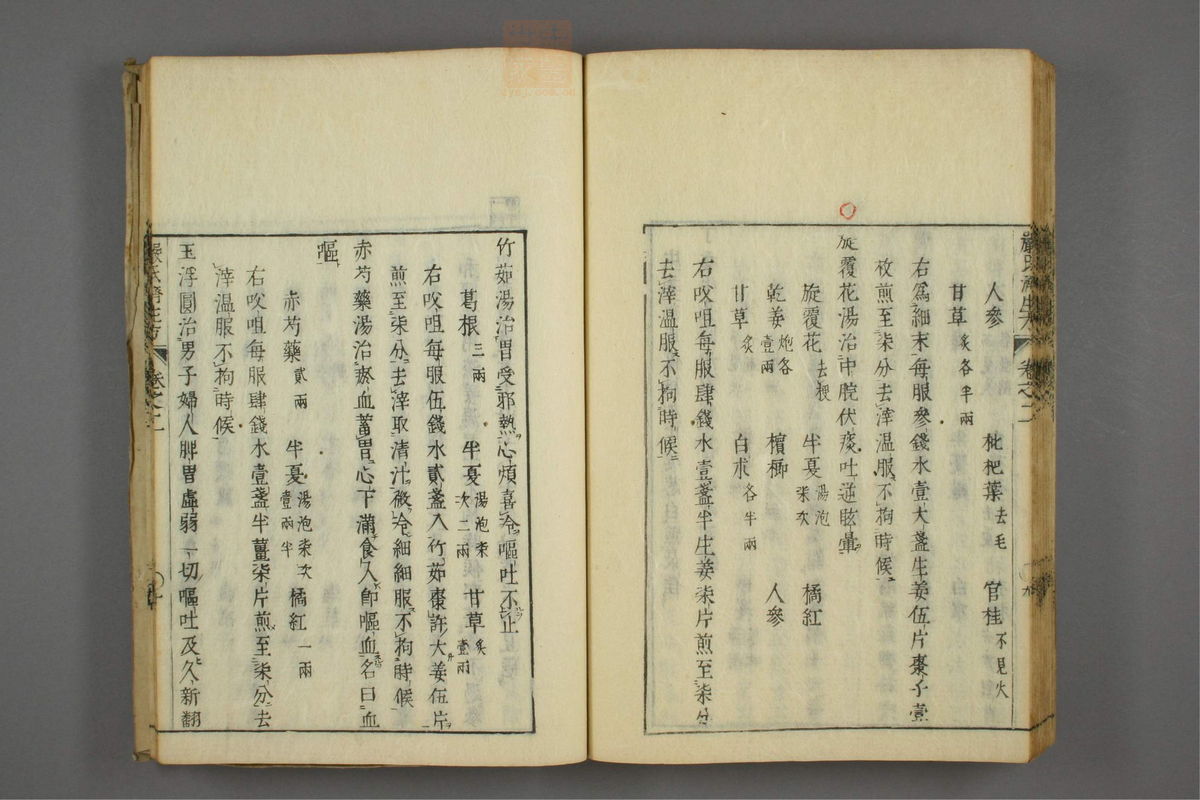 嚴氏濟生方 卷之二 九
人參 枇杷葉去毛 官桂不見火
甘草炙各半兩
右爲細末每服參錢水壹大盞生姜伍片棗子壹
枚煎至柒分去滓温服不拘時候
旋覆花湯治中脘伏痰吐逆眩暈
旋覆花去梗 半夏湯泡柒次 橘紅
乾姜炮各壹兩 檳榔 人參
甘草炙 白朮各半兩
右㕮咀每服肆錢水壹盞半生姜柒片煎至柒分
去滓温服不拘時候
竹茹湯治胃受邪熱心煩喜冷嘔吐不止
葛根三兩 半夏湯泡柒次二兩 甘草炙壹兩
右㕮咀每服伍錢水貳盞入竹茹棗許大姜伍片
煎至柒分去滓取清汁微冷細細服不拘時候
赤芍藥湯治瘀血蓄胃心下滿食入即嘔血名曰血
嘔
赤芍藥貳兩 半夏湯泡柒次壹兩半 橘紅一兩
右㕮咀每服肆錢水壹盞半薑柒片煎至柒分去
滓温服不拘時候
玉浮圓治男子婦人脾胃虛弱一切嘔吐及久新翻
嚴氏濟生方 卷之二